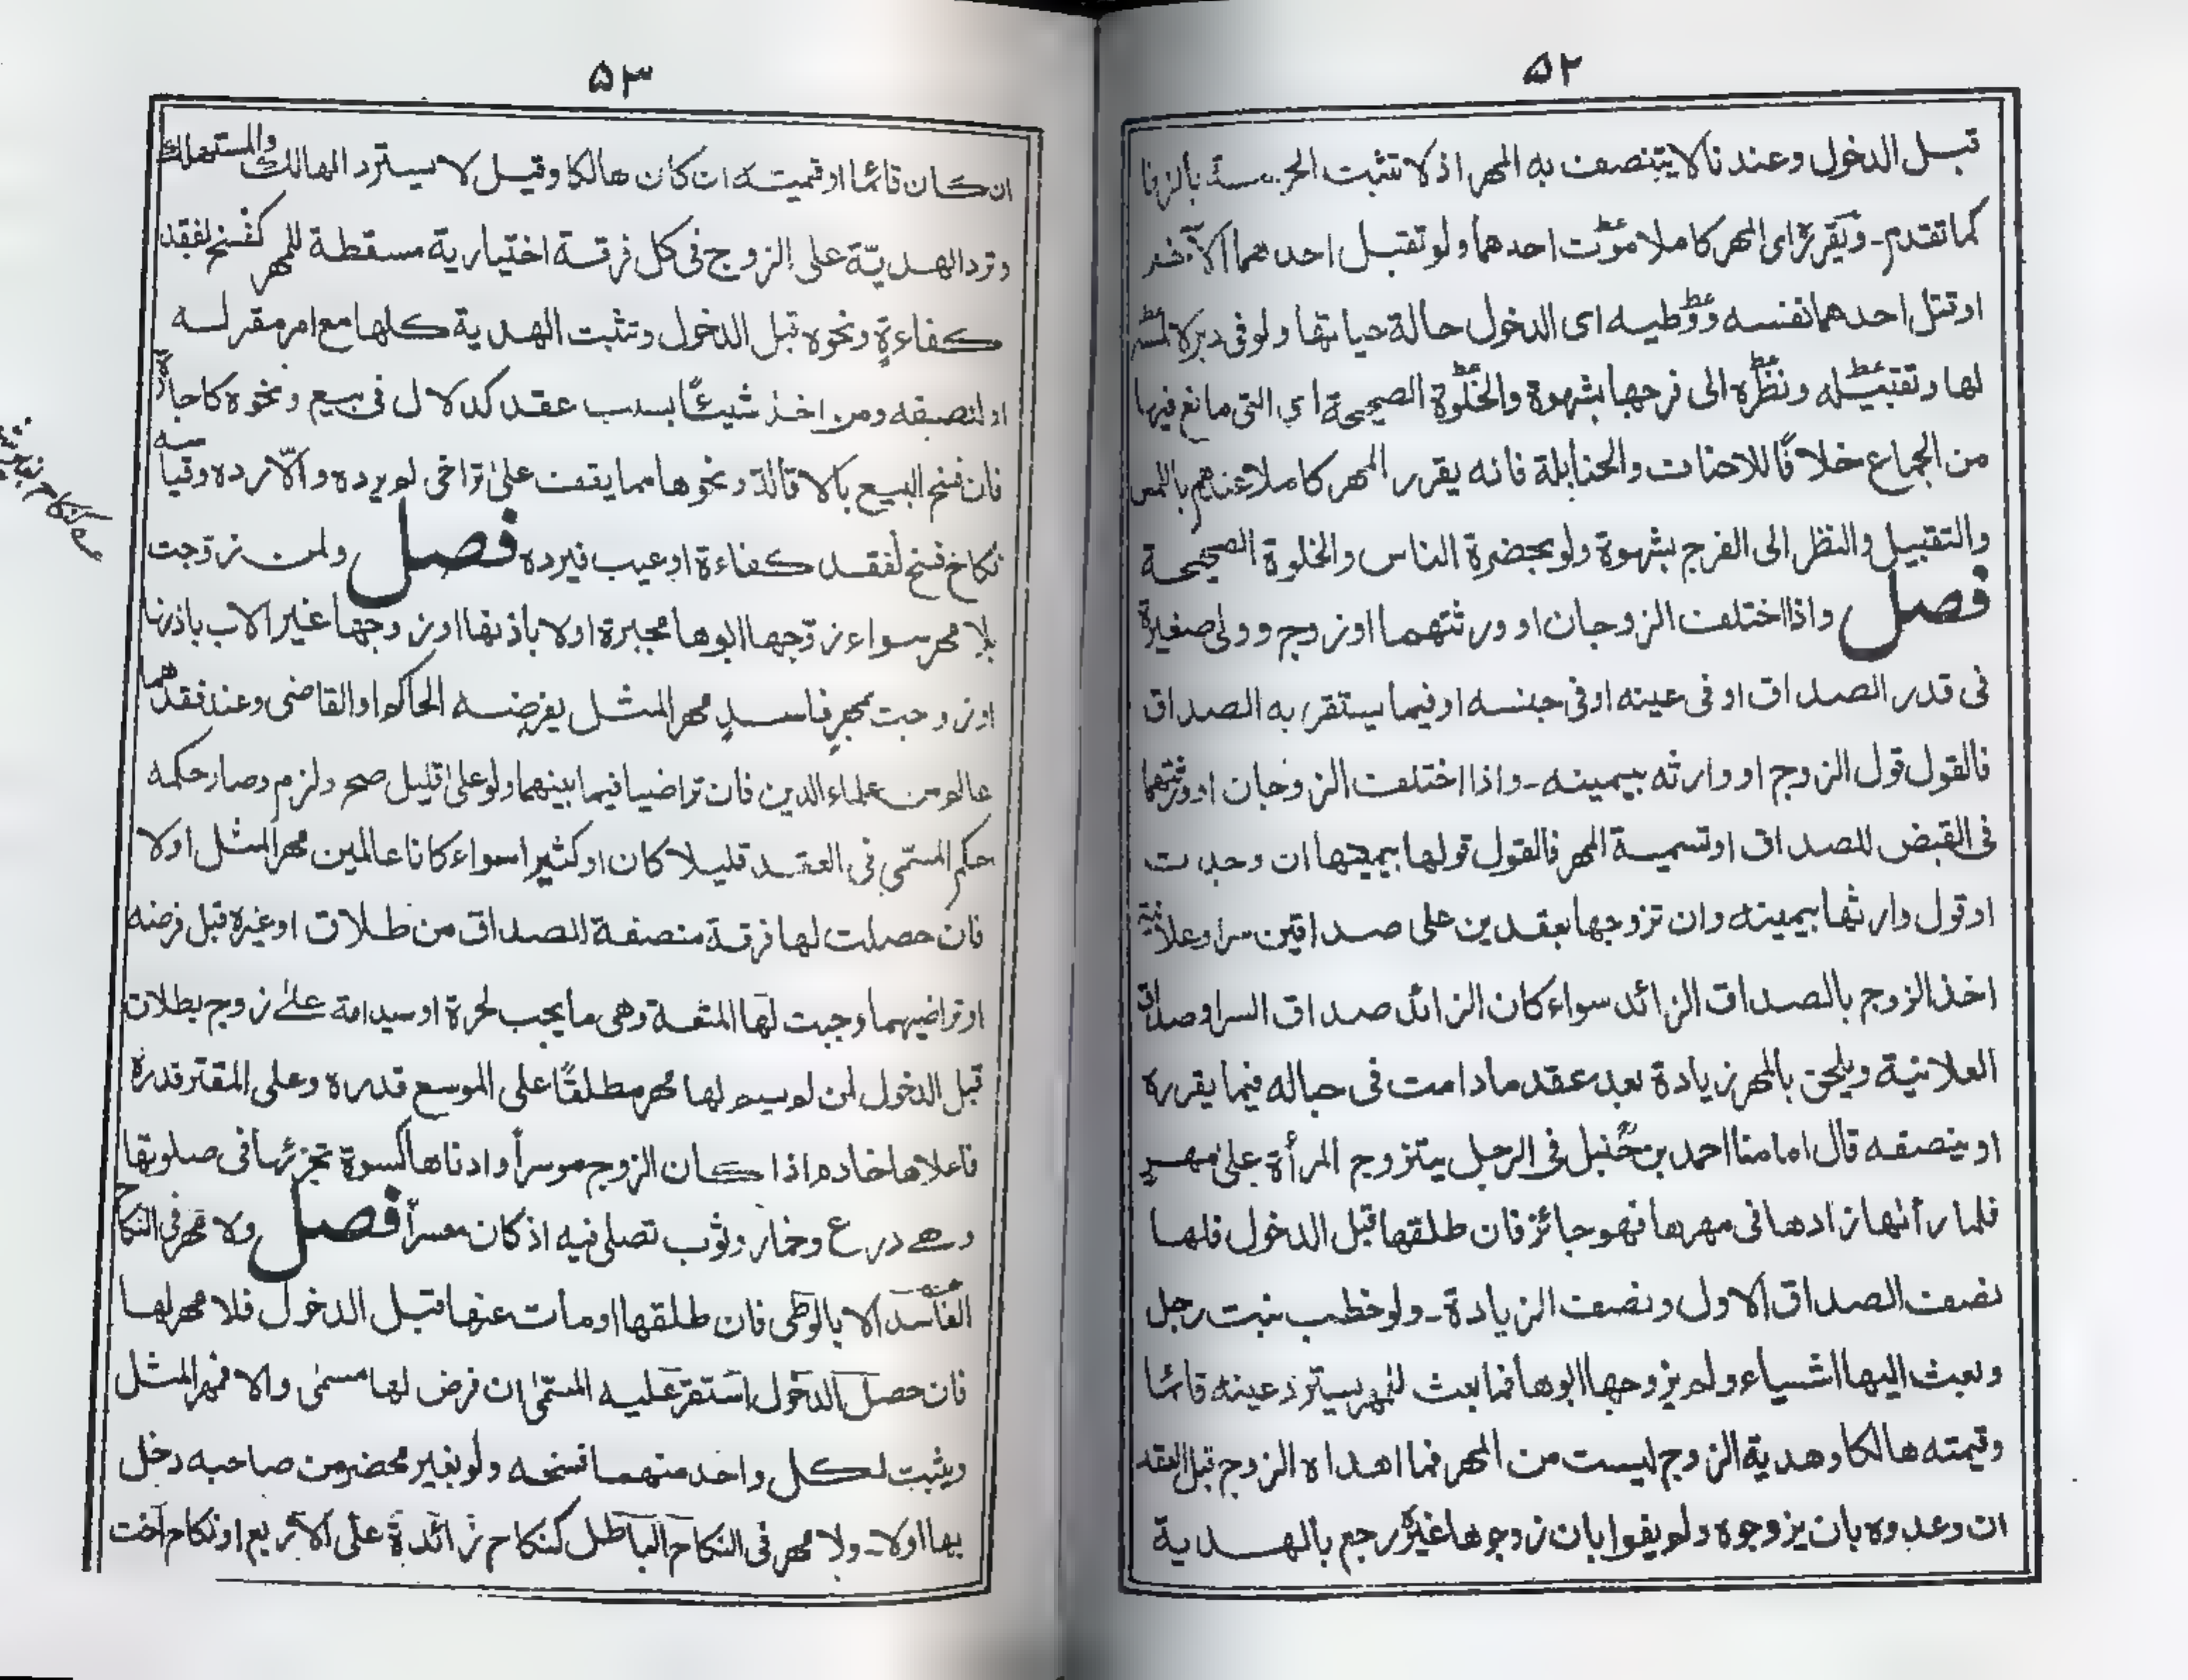 ۵۲
قبل الدخول وعندنا لا يتنصف به المهر اذ لا تثبت بالزنا
كما تقدم ـ ويقرره اى المهر كاملا موت احدهما ولو تقبل احدهما الآخر
او قتل احدهما نفسه ووطيه اى الدخول حالة حياتها ولو فى دبر
لها وتقبيله ونظره الى فرجها بشهوة والخلوة الصحيحة اى التى ما نع فيها
من الجماع خلافًا للاحناف والحنابلة فانه يقرر المهر كاملا عندهم باللمس
والتقبيل والنظر الى الفرج بشهوة ولو بحضرة الناس والخلوة الصحيحة
فصل واذا اختلف الزوجان او ورثتهما او زوج وولى صغيرة
فى قدر الصداق او فى عينه او فى جنسه او فيما يستقر به الصداق
فالقول قول الزوج او وارثه بيمينه ـ واذا اختلف الزوجان او ورثتهما
فى القبض للصداق او تسمية المهر فالقول قولها بيمينها ان وجدت
او قول وارثها بيمينه وان تزوجها بعقدين على صداقين سرا وعلانية
اخذ الزوج بالصداق الزائد سواء كان الزائد صداق السر او صداق
العلانية ويلحق بالمهر زيادة بعد عقد ما دامت فى حباله فيما يقرره
او ينصفه قال امامنا احمد بن حنبل فى الرجل يتزوج المرأة على مهرٍ
فلما رأنها زادها فى مهرها فهو جائز فان طلقها قبل الدخول فلها
نصف الصداق الاول ونصف الزيادة ـ ولو خطب بنت رجل
وبعث اليها اشياء ولم يزوجها ابوها فما بعث للمهر يسترد عينه قائما
وقيمته هالكا وهدية الزوج ليست من المهر فما اهداه الزوج قبل العقد
ان وعدوه بان يزوجوه ولم يفوا بان زوجوها غيره رجع بالهدية
۵۳
ان كان قائما او قيمته ان كان هالكا وقيل لا يسترد الهالك والمستهلك
وترد الهديّة على الزوج فى كل فرقة اختيارية مسقطة للمهر كفسخ لفقد
كفاءةٍ ونحوه قبل الدخول وتثبت الهدية كلها مع امر مقرر له
او لنصفه ومن اخذ شيئًا بسبب عقد كدلال فى بيع ونحوه كاجارة
فان فسخ البيع بالاقالة ونحوها مما يقف على تراخى لم يرده والّا رده وقياسه
نكاح فسخ لفقد كفاءة او عيب فيرده فصل ولمن زوجت
بلا مهر سواء زوّجها ابوها مجبرة او لا باذنها او زوجها غير الاب باذنها
او زوجت بمهرٍ فاسدٍ مهر المثل يفرضه الحاكم او القاضى وعند فقدهما
عالم من علماء الدين فان تراضيا فيما بينهما ولو على قليل صح ولزم وصار حكمه
حكم المسمّى فى العقد قليلا كان او كثيرا سواء كانا عالمين مهر المثل او لا
فان حصلت لها فرقة منصفة للصداق من طلاق او غيره قبل فرضه
او تراضيهما وجبت لها المتعة وهى ما يجب لحرة او سيد امة على زوج بطلاق
قبل الدخول لمن لم يسم لها مهر مطلقًا على الموسع قدره وعلى المقتر قدره
فاعلاها خادم اذا كان الزوج موسراً وادناها كسوة تجزئها فى صلوتها
وهى درع وخمار وثوب تصلى فيه اذ كان معسراً فصل ولا مهر فى النكاح
الفاسد الا بالوطى فان طلقها او مات عنها قبل الدخول فلا مهر لها
فان حصل الدخول استقر عليه المسمّى ان فرض لها مسمى والا فمهر المثل
ويثبت لكل واحد منهما فسخه ولو بغير محضر من صاحبه دخل
بها اولا ـ ولا مهر فى النكاح الباطل كنكاح زائدة على الاربع او نكاح اخت